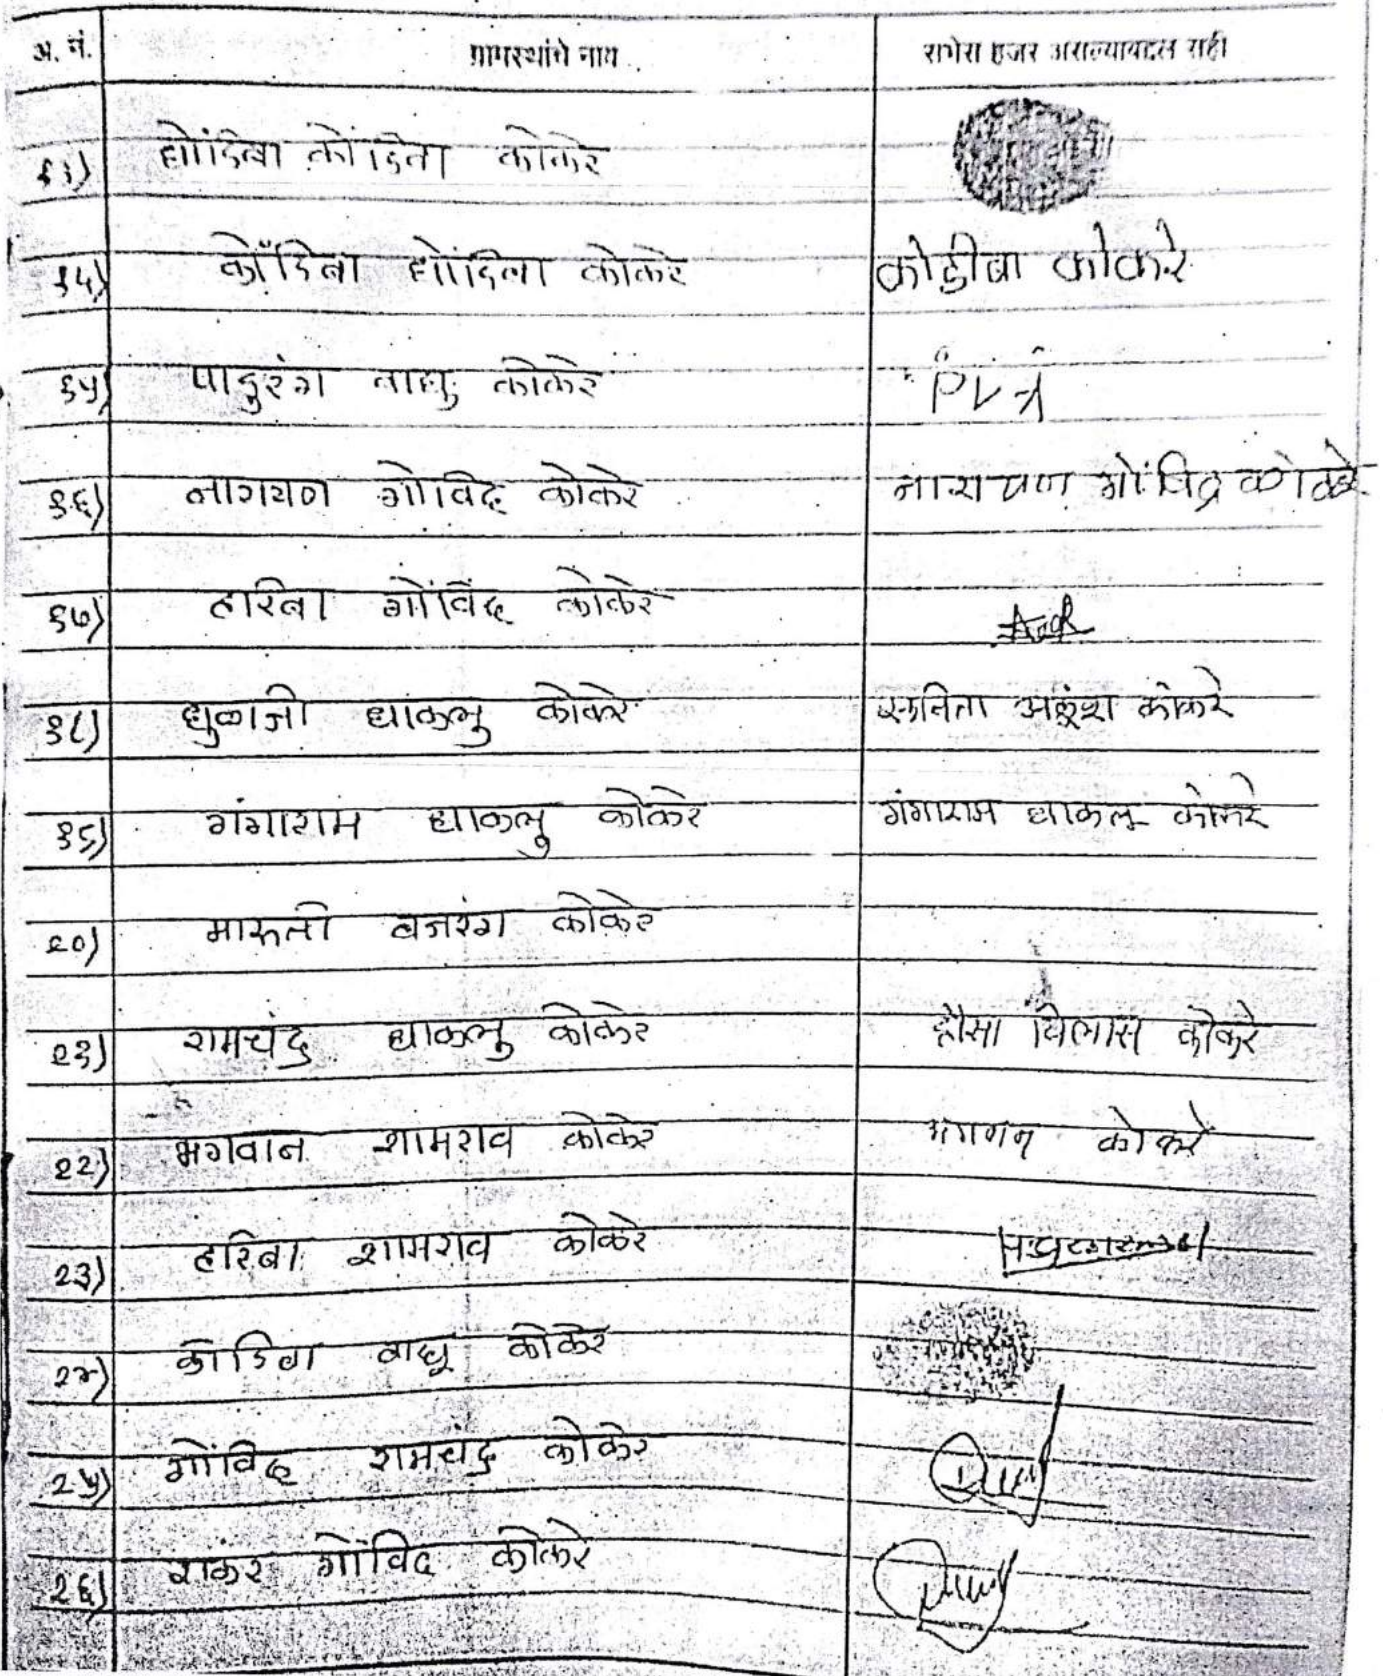 अ. नं. ग्रामस्थांचे नाव सभेस हजर असल्याबद्दल सही
१३) धोंडिबा कोंडिबा कोकरे
१४) कोंडिबा धोंडिबा कोकरे कोंडीबा कोकरे
१५) पांडुरंग बाबु कोकरे
१६) नारायण गोविंद कोकरे नारायण गोविंद कोकरे
१७) हरिबा गोविंद कोकरे
१८) धुळाजी धाकलु कोकरे सुनिता अंकुश कोकरे
१९) गंगाराम धाकलु कोकरे गंगाराम धाकलु कोकरे
२०) मारुती बजरंग कोकरे
२१) रामचंद्र धाकलु कोकरे हौसा विलास कोकरे
२२) भगवान शामराव कोकरे कोकरे
२३) हरिबा शामराव कोकरे
२४) कोंडिबा बाबू कोकरे
२५) गोविंद रामचंद्र कोकरे
२६) शंकर गोविंद कोकरे